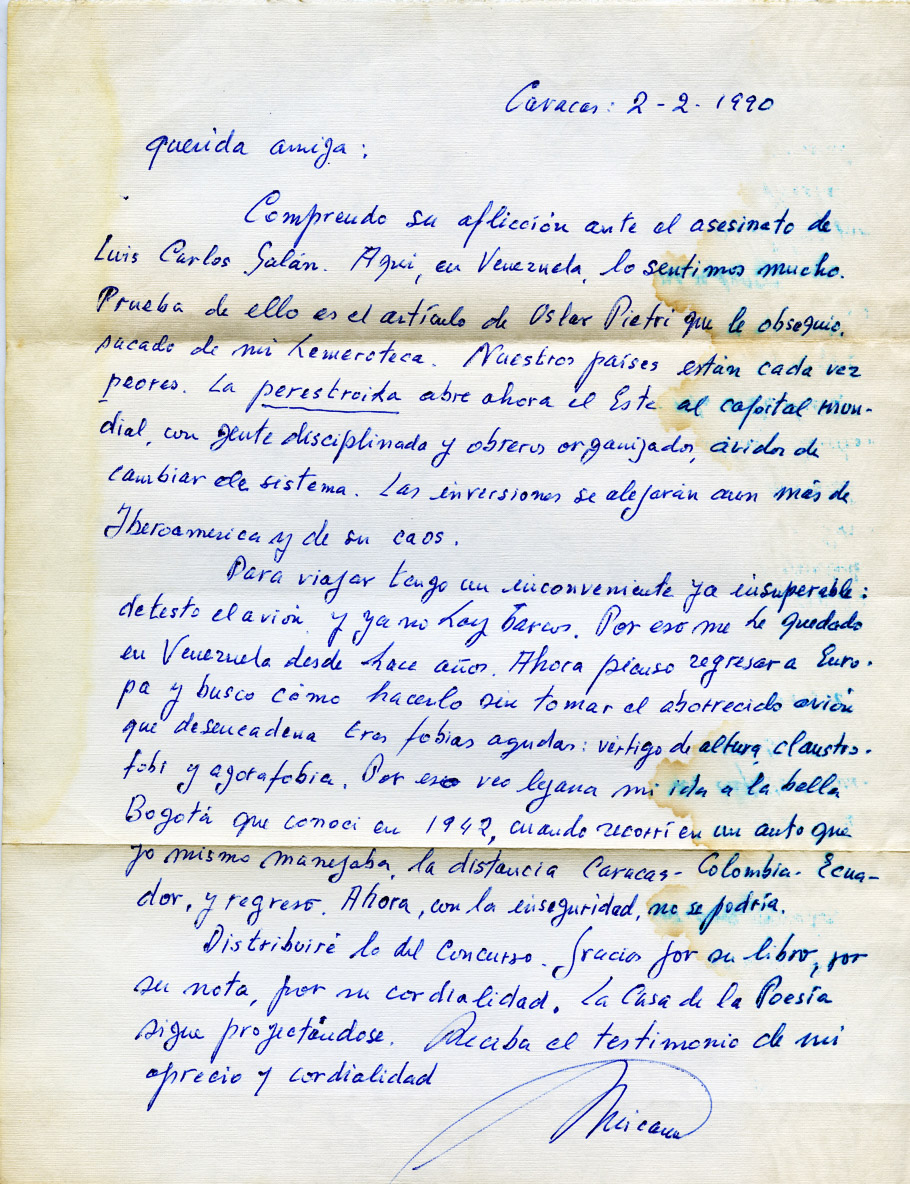 Caracas: 2-2-1990
querida amiga:
Comprendo su aflicción ante el asesinato de
Luis Carlos Galán. Aquí, en Venezuela, lo sentimos mucho.
Prueba de ello es el artículo de Uslar Pietri que le obsequio,
sacado de mi hemeroteca. Nuestros países están cada vez
peores. La perestroika abre ahora el Este al capital mun-
dial, con gente disciplinada y obreros organizados, ávidos de
cambiar de sistema. Las inversiones se alejarán aun más de
Iberoamerica y de su caos.
Para viajar tengo un inconveniente ya insuperable:
detesto el avión y ya no hay barcos. Por eso me he quedado
en Venezuela desde hace años. Ahora pienso regresar a Euro-
pa y busco cómo hacerlo sin tomar el aborrecido avión
que desencadena tres fobias agudas: vértigo de altura, claustro-
fobi y agorafobia. Por eso veo lejana mi ida a la bella
Bogotá que conocí en 1942, cuando recorrí en un auto que
yo mismo manejaba, la distancia Caracas- Colombia- Ecua-
dor, y regreso. Ahora, con la inseguridad, no se podría.
Distribuiré lo del Concurso. Gracias por su libro, por
su nota, por su cordialidad. La Casa de la Poesía
sigue proyectándose. Reciba el testimonio de mi
aprecio y cordialidad